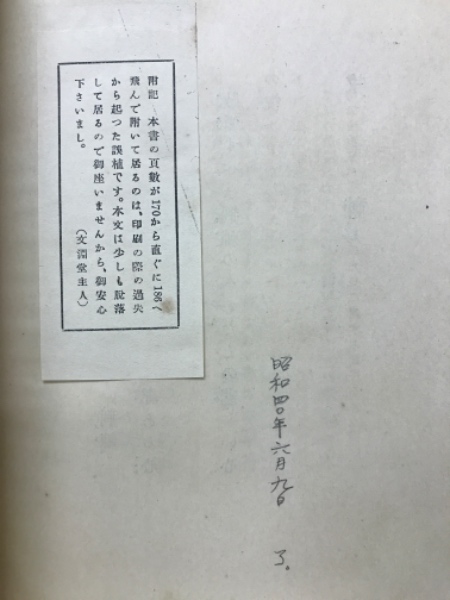 附記　本書の頁數が170から直ぐに186へ
飛んで附いて居るのは、印刷の際の過失
から起つた誤植です。本文は少しも脫落
して居るので御座いませんから、御安心
下さいまし。
（文淵堂主人）
昭和四〇年六月九日　了。